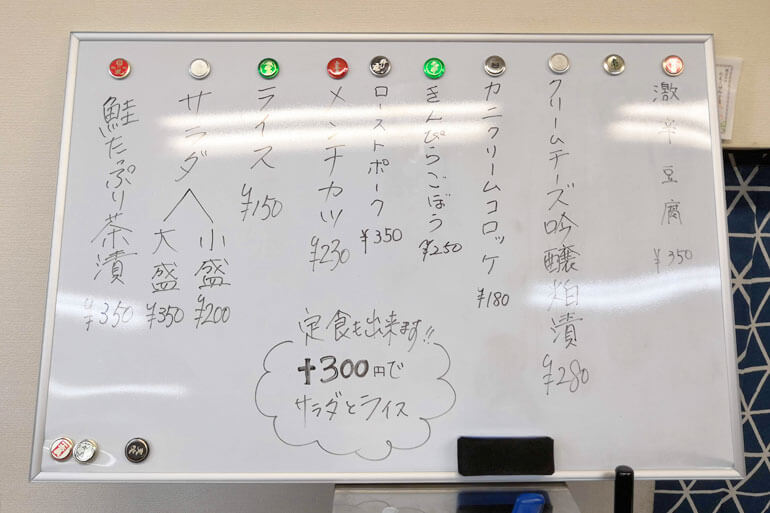 激辛豆腐 ¥350
クリームチーズ吟醸粕漬 ¥280
カニクリームコロッケ ¥180
きんぴらごぼう ¥250
ローストポーク ¥350
メンチカツ ¥230
ライス ¥150
サラダ
小盛 ¥200
大盛 ¥350
鮭たっぷり茶漬 ¥350
定食も出来ます!!
+300円で
サラダとライス